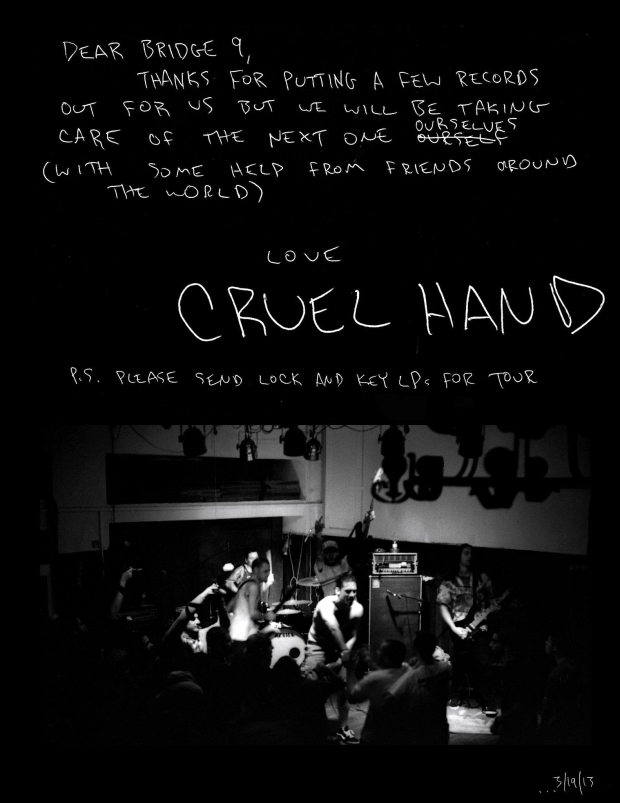 DEAR BRIDGE 9,
THANKS FOR PUTTING A FEW RECORDS
OUT FOR US BUT WE WILL BE TAKING
CARE OF THE NEXT ONE OURSELVES
OURSELF
(WITH SOME HELP FROM FRIENDS AROUND
THE WORLD)
LOVE
CRUEL HAND
P.S. PLEASE SEND LOCK AND KEY LPs FOR TOUR
...3/19/13